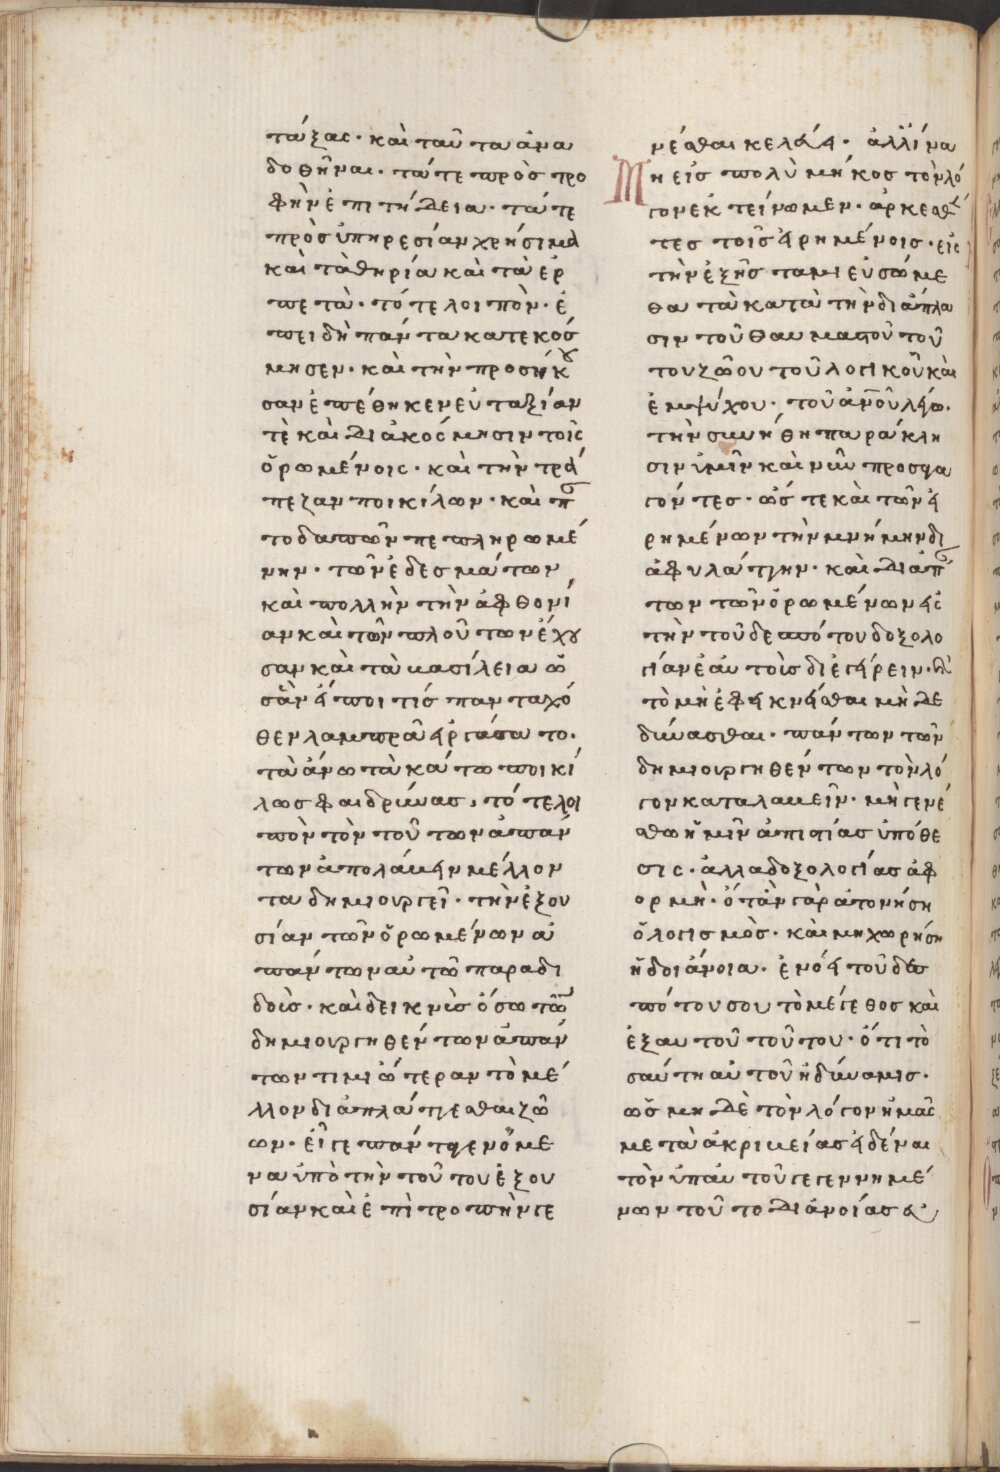 τάξας· καὶ ταῦτα ἀνα
δοθῆναι· τά τε πρὸς τρο
φὴν ἐπιτήδεια· τά τε
πρὸς ὑπηρεσίαν χρήσιμα
καὶ τὰ θηρία καὶ τὰ ἑρ
πετὰ· τότε λοιπὸν· ἐ
πειδὴ πάντα κατεκόσ
μησεν· καὶ τὴν προσήκȣ
σαν ἐπέθηκεν εὐταξίαν
τὲ καὶ διακόσμησιν τοῖς
ὁρωμένοις· καὶ τὴν τρά
πεζαν ποικίλων· καὶ π
τοδαπῶν πεπληρωμέ
νην· τῶν ἐδεσμάτων
καὶ πολλὴν τὴν ἀφθονί
αν καὶ τῶν πλούτων ἔχȣ
σαν καὶ τὰ βασίλεια ὡ
σὰν είποι τίς πανταχό
θεν λαμπρὰ εἰργάσατο·
τὰ ἄνω τὰ κάτω ποικί
λως φαιδρύνας, τότε λοι
πὸν τὸν τούτων ἁπάν
των ἀπολάβειν μέλλον
τα δημιουργεῖ· τὴν ἐξου
σίαν τῶν ὁρωμένων ἁ
πάντων αὐτῶ παραδι
δοὺς· καὶ δεικνὺς ὅσω τῶν
δημιουργηθέντων ἁπάν
των τιμιώτερον τὸ μέ
λλον διαπλάττεσθαι ζῶ
ον· εἴγε πάντα γενόμε
να ὑπὸ τὴν τούτου ἐξου
σίαν καὶ ἐπιτροπὴν γε
νέσθαι κελεύει· ἀλλ' ἵνα
μη εἰς πολὺ μῆκος τὸν λό
γον ἐκτείνωμεν· ἀρκεσθέν
τες τοῖς εἰρημένοις· εἰς
τὴν ἑξῆς ταμιευσώμε
θα τὰ κατὰ τὴν διάπλα
σιν τοῦ θαυμαστοῦ τού
του ζώου τοῦ λογικοῦ καὶ
ἐμψύχου· τοῦ ἀνοῦ λέγω·
τὴν συνήθη παράκλη
σιν ὑμῖν καὶ νῦν προσαγα
γόντες· ὥστε καὶ τῶν εἰ
ρημένων τὴν μνήμην δι
αφυλάττειν· καὶ διὰ π
των τῶν ὁρωμένων εἰς
τὴν τοῦ δεσπότου δοξολο
γίαν ἑαυτοὺς διεγείρειν· καὶ
τὸ μὴ ἐφεικνεῖσθαι μὴ δὲ
δύνασθαι· πάντων τῶν
δημιουργηθέντων τὸν λό
γον καταλαβεῖν· μὴ γενέ
σθω ἡμῖν ἀπιστίας ὑπόθε
σις· ἀλλα δοξολογίας ἀφ
ορμὴ· ὅτὰν γὰρ ἀτονήση
ὁ λογισμὸς· καὶ μη χωρήση
ἡ διάνοια· ἐνόει τοῦ δεσ
πότου σου τὸ μέγεθος καὶ
ἐξ αυτοῦ τούτου· ὅτι το
σαύτη αὐτοῦ ἡ δύναμις·
ὡς μηδὲ τὸν λόγον ἡμᾶς
μετὰ ἀκριβείας εἰδέναι
τὸν ὑπ' αὐτοῦ γεγεννημέ
νων τοῦτο διανοίας